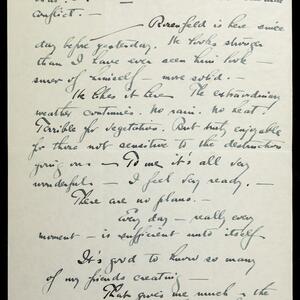 conflict. —
Rosenfeld is here since
day before yesterday. He looks stronger
than I have ever seen him look
surer of himself — more solid. —
He likes it here. The extraordinary
weather continues. No rain. No heat!
Terrible for vegetation. But truly enjoyable
for those not sensitive to the destruction
going on. — To me it's all very
wonderful — I feel very ready. —
There are no plans. —
Every day — really every
moment — is sufficient unto itself —
It's good to know so many
of my friends creating —
That gives me much — the